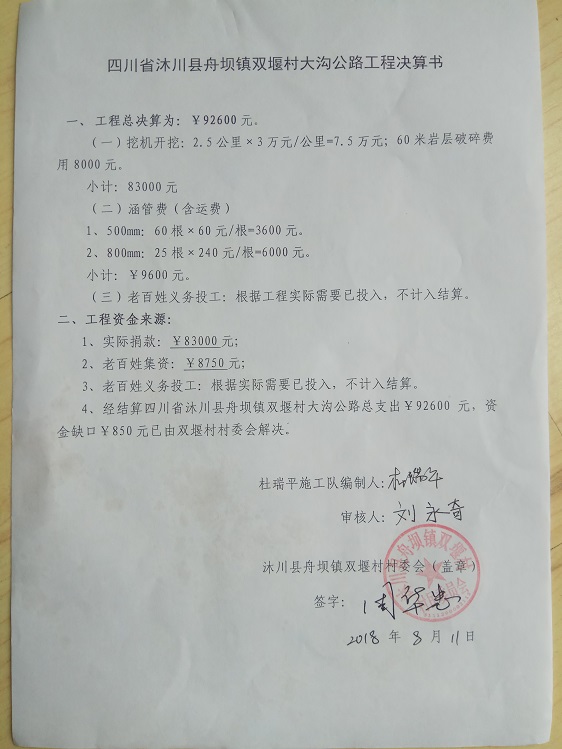 四川省沐川县舟坝镇双堰村大沟公路工程决算书
一、工程总决算为：￥92600元。
（一）挖机开挖：2.5公里×3万元/公里=7.5万元；60米岩层破碎费
用8000元。
小计：83000元
（二）涵管费（含运费）
1、500mm：60根×60元/根=3600元。
2、800mm：25根×240元/根=6000元。
小计：￥9600元。
（三）老百姓义务投工：根据工程实际需要已投入，不计入结算。
二、工程资金来源：
1、实际捐款：￥83000元；
2、老百姓集资：￥8750元；
3、老百姓义务投工：根据实际需要已投入，不计入结算。
4、经结算四川省沐川县舟坝镇双堰村大沟公路总支出￥92600 元，资
金缺口￥850元已由双堰村村委会解决。
杜瑞平施工队编制人：杜瑞平
审核人：刘永奇
沐川县舟坝镇双堰村村委会（盖章）
签字：周华忠
2018 年 8 月 11日